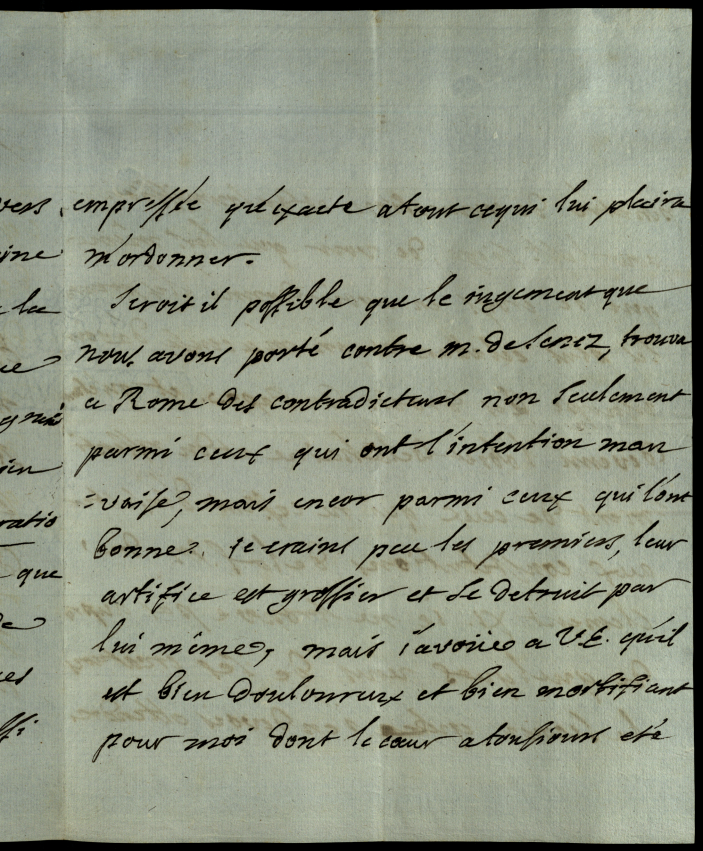 empressée qu'exacte atout cequi lui plaira
m'ordonner.
Seroit il possible que le iugement que
nous avons porté contre m. de Senez, trouva
a Rome des contradicteurs non seulement
parmi ceux qui ont l'intention mau
=vaise, mais encor parmi ceux qui l'ont
bonne? ie crains peu les premiers, leur
artifice est grossier et se detruit par
lui même, mais i'avoüe a V.E. qu'il
est bien douloureux et bien mortifiant
pour moi dont le cœur a tousiours eté
vers
ine
la
ue
gné
ien
ratio
que
de
ues
ssi